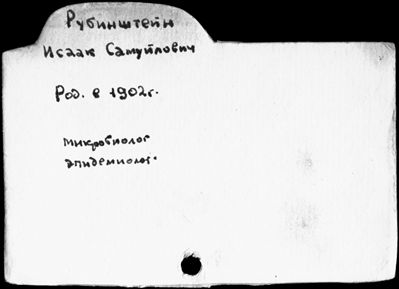 Рубинштейн
Исаак Самуйлович
Род. в 1902г.
микробиолог
эпидемиолог.